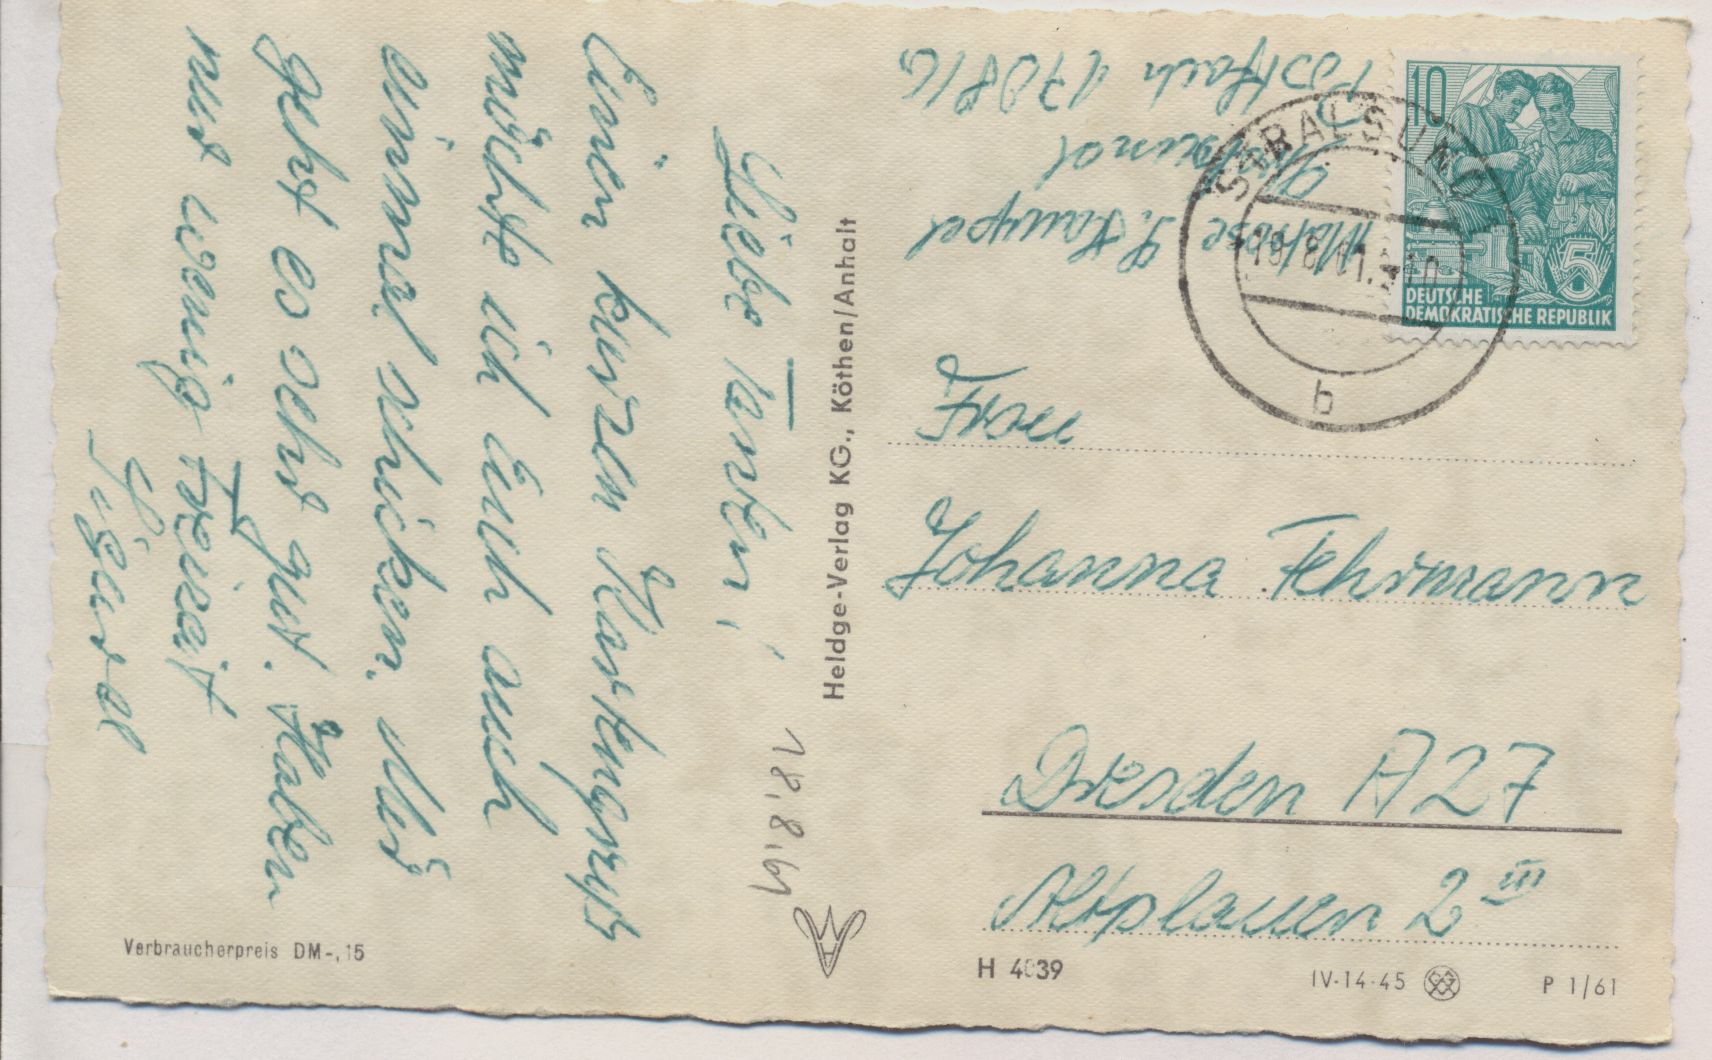 Liebe Tanten!
Einen kurzen Kartengruß
möchte ich Euch auch
einmal schicken. Mir
geht es sehr gut. Haben
nur wenig Freizeit
18.8.61
Heldge-Verlag KG., Köthen/Anhalt
Verbraucherpreis DM-,15
Matrose S. Hampel
Postfach 1708/G
10
5
DEUTSCHE
DEMOKRATISCHE REPUBLIK
STRALSUND 1
19.8.61
b
Frau
Johanna Fehrmann
Dresden A 27
Altplauen 2 III
H 4039
IV-14-45
P 1/61